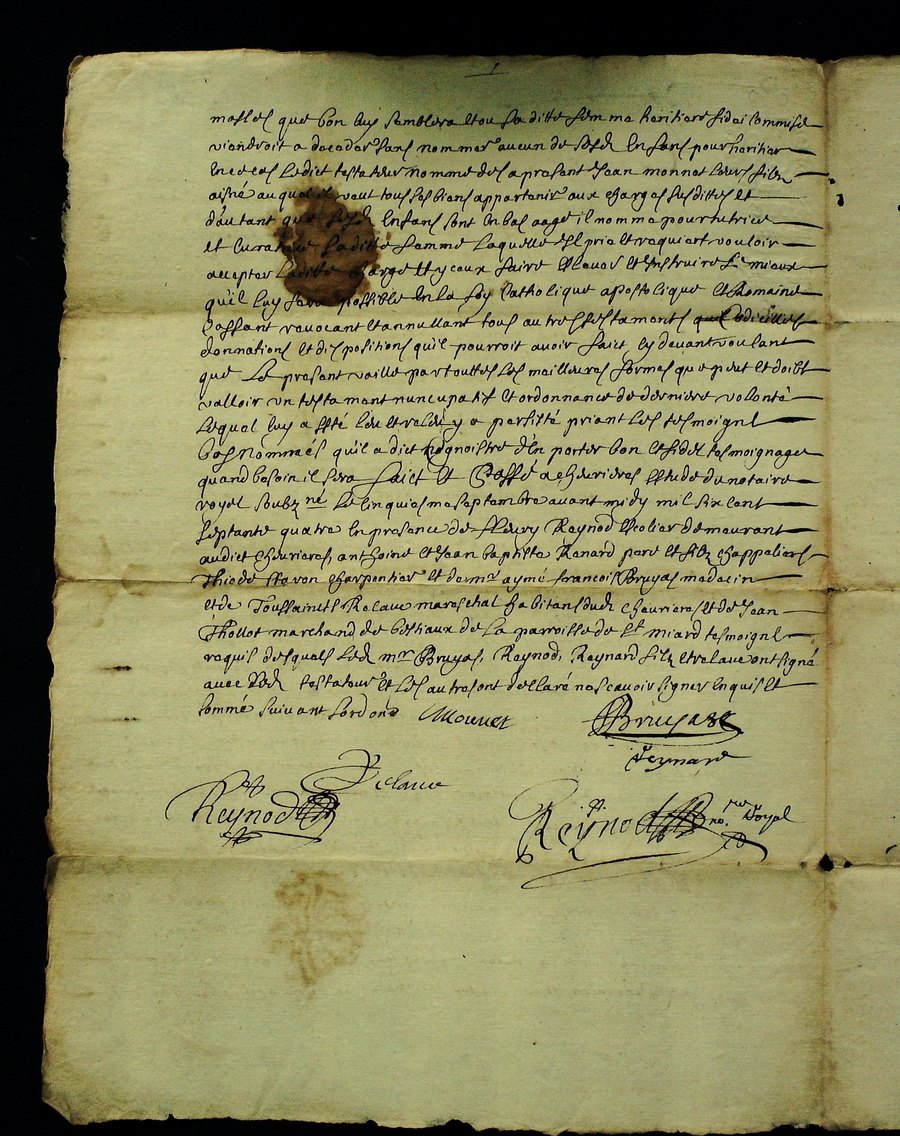 masles que bon luy semblera et ou sa ditte femme heritiere fideicommise
viendroit a deceder sans nommer aucun de sesd enfans pour heritier
en ce cas ledict testateur nomme des a presant Jean monnet leurs filz
aisné auquel il veut tous ses biens appartenir aux charges susdittes et
d'autant que sesd enfans sont en bas aage il nomme pour tutrice
et curatrice sa ditte femme laquelle il prie et requiert vouloir
accepter laditte charge et yceux faire eslever et instruire le mieux
qu'il luy sera possible en la foy Catholique apostolique et Romaine
Cassant revocant et annullant tous autres testaments codicilles
donnations et dispositions qu'il pourroit avoir faict cy devant voulant
que le presant vaille par touttes les meilleures formes que peut et doibt
valloir un testamant nuncupatif et ordonnance de derniere volonté
lequel luy a esté leu et releu y a persisté priant les tesmoings
bas nommés qu'il a dict cognoistre d'en porter bon et fidel tesmoignage
quand besoin il sera faict et passé a cheurieres estude du notaire
royal soubz.né le cinquiesme septembre avant midy mil six cent
septante quatre en presance de fleury Reynod escolier demeurant
audict cheurieres, anthoine et Jean baptiste Renard pere et filz chappeliers
charpentier et de mr aymé francois Bruyas medecin
et de Toussainct Relave mareschal habitans dud cheurieres et de Jean
Thollot marchand de bestiaux de la parroisse de st miard tesmoings
requis desquels led mr Bruyas, Reynod, Reynard filz et relave ont signé
avec led testateur et les autres ont desclaré ne scavoir signer enquis et
sommé suivant lordonc Monnet Bruyas
reynard
Relave
Reynod Reynod no.re Royal